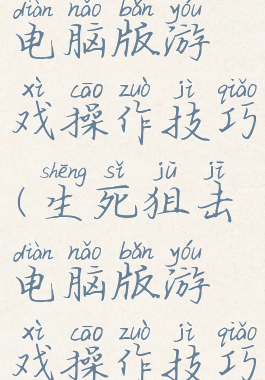 diàn nǎo bǎn yóu
电脑版游
xì cāo zuò jì qiǎo
戏操作技巧
shēng sǐ jū jī
（生死狙击
diàn nǎo bǎn yóu
电脑版游
xì cāo zuò jì qiǎo
戏操作技巧